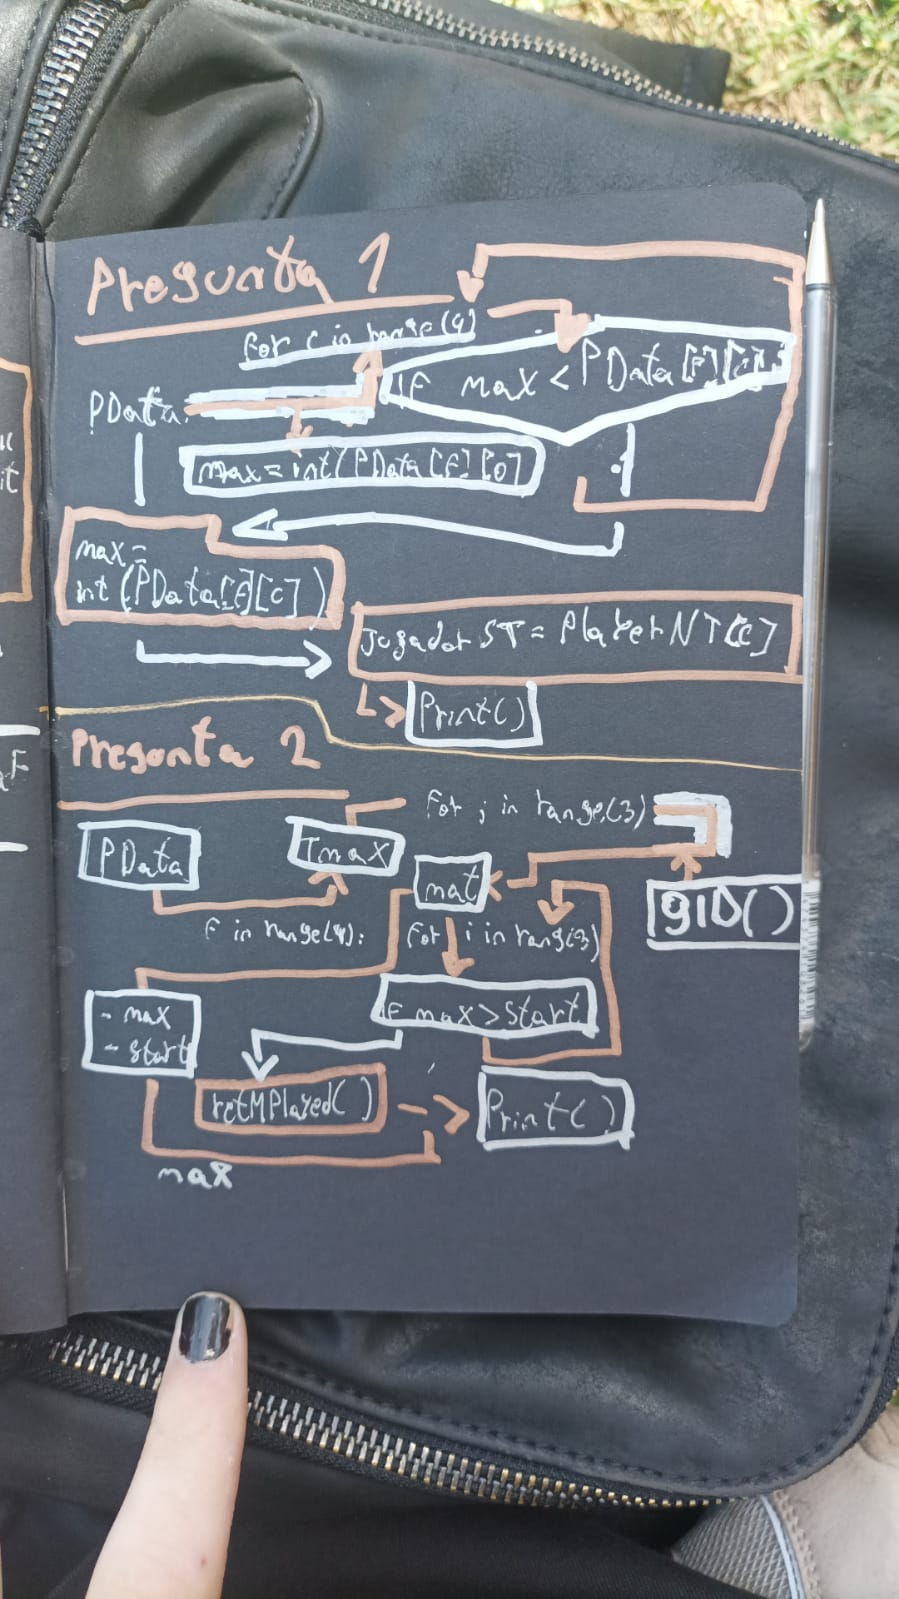 Pregunta 1
for c in range(4)
if max < PData[F][C]
PData
max = int(PData[F][0]
max =
int(PData[F][C])
Jugador ST = Player NT[C]
Print()
Pregonta 2
For j in range(3)
PData
Tmax
mat
gID()
F in range(4):
For i in rang(3)
- max
- Start
if max > Start
retMPlayed()
Print()
max
F
it